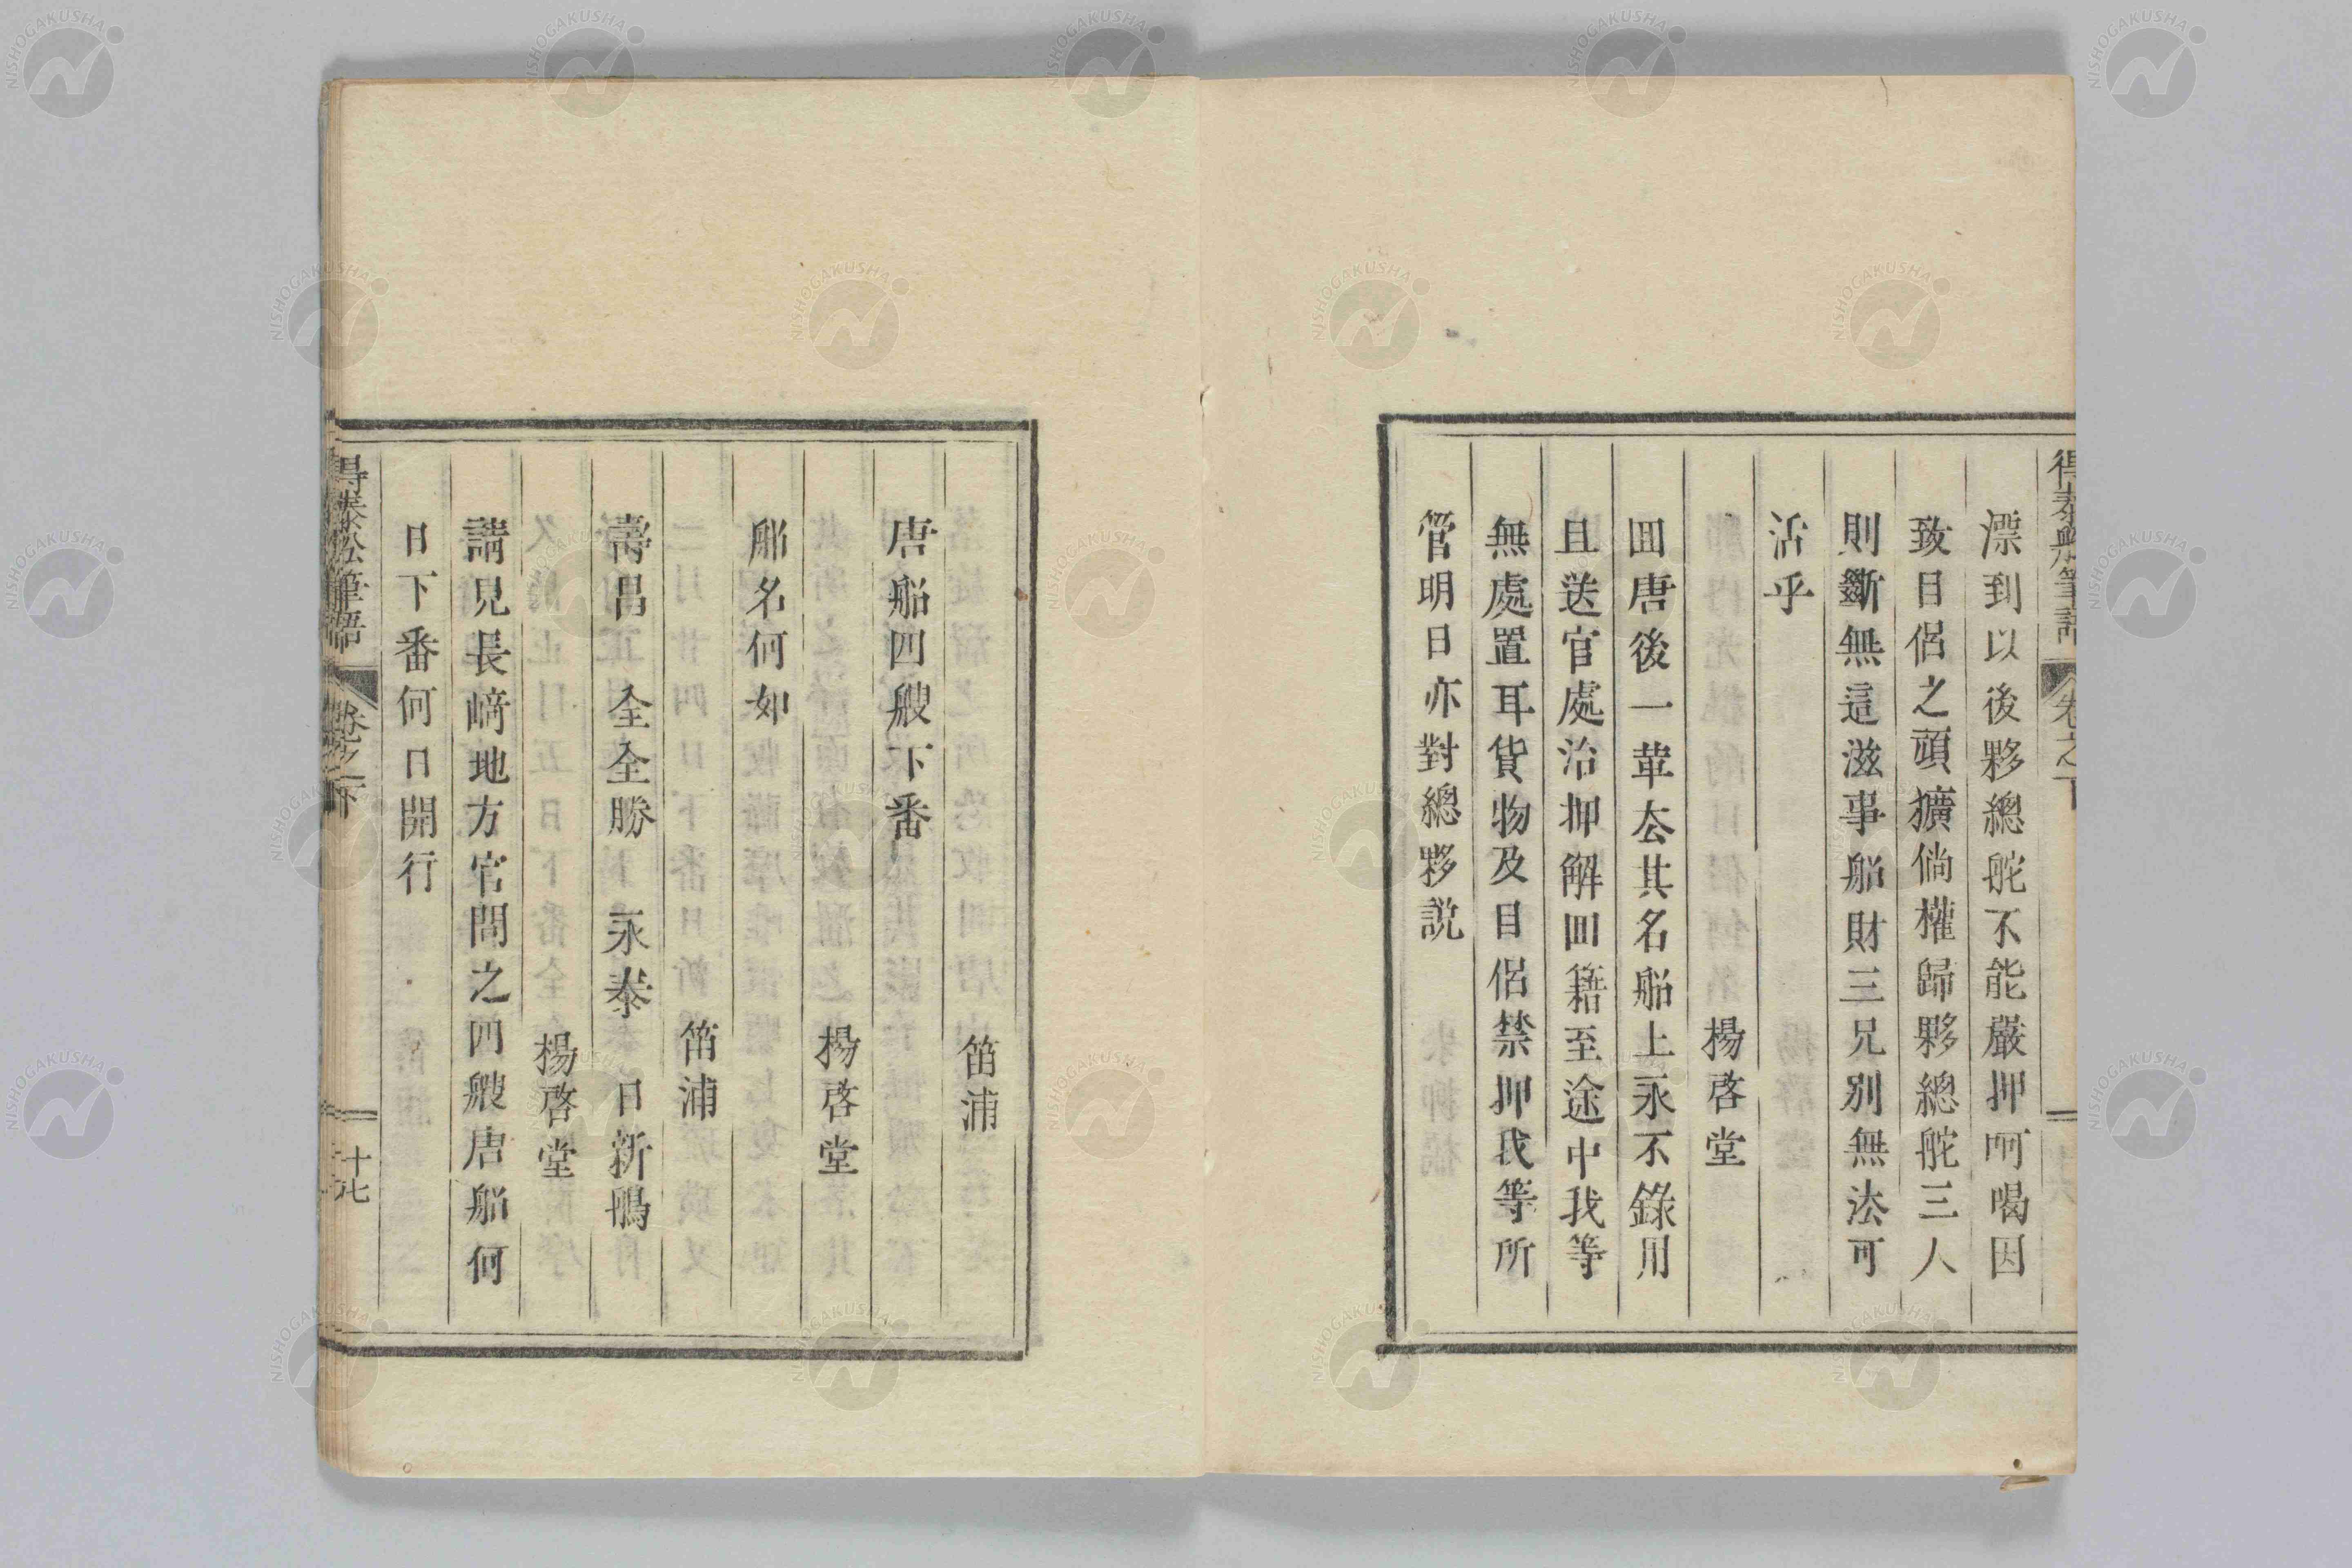 漂到以後夥總舵不能嚴押呵喝因
致目侶之頑獷倘權歸夥總舵三人
則斷無這滋事船財三兄别無法可
活乎
楊啓堂
囬唐後一軰厺其名船上永不錄用
且送官處治押解囬籍至途中我等
無處置耳貨物及目侶禁押我等所
管明日亦對總夥説
笛浦
唐船四艘下番
楊啓堂
船名何如
笛浦
壽昌　金全勝　永泰　日新鵰
楊啓堂
請見長﨑地方官問之四艘唐船何
日下番何日開行
得泰舩筆語
卷之下
十七